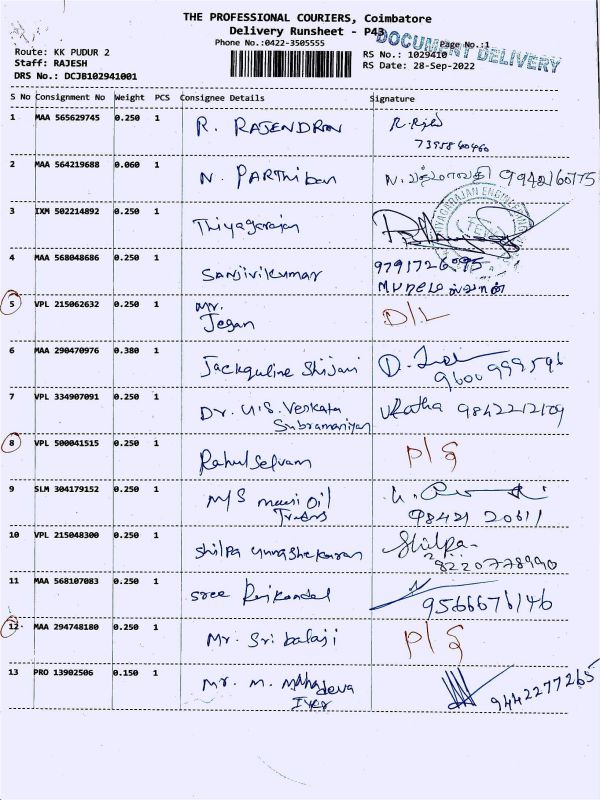 THE PROFESSIONAL COURIERS, Coimbatore
Delivery Runsheet - P43
Phone No.:0422-3505555
Page No.:1
DOCUMENT DELIVERY
Route: KK PUDUR 2
RS No.: 1029410
Staff: RAJESH
RS Date: 28-Sep-2022
DRS No.: DCJB102941001
S No Consignment No Weight PCS Consignee Details Signature
1 MAA 565629745 0.250 1 R. RAJENDRAN
2 MAA 564219688 0.060 1 N. PARTHiban N. 9942160775
3 IXM 502214892 0.250 1 Thiyagarajan
4 MAA 568048686 0.250 1 Sanjivikumar 9791726095
5 VPL 215062632 0.250 1 Mr. D/L
Jegan
6 MAA 290470976 0.380 1 Jackquline Shijani
9600999596
7 VPL 334907091 0.250 1 Dr. U.S. Venkata
Subramaniyan
8 VPL 500041515 0.250 1 Rahul Selvam
9 SLM 304179152 0.250 1 M/S Mani Oil
98421 20611
10 VPL 215048300 0.250 1 Shilpa Shilpa
8220778990
11 MAA 568107083 0.250 1 Sree 9566676146
12 MAA 294748180 0.250 1 Mr. Sri balaji
13 PRO 13902506 0.150 1 Mr. M. Mahadeva 9442277265
Iyer